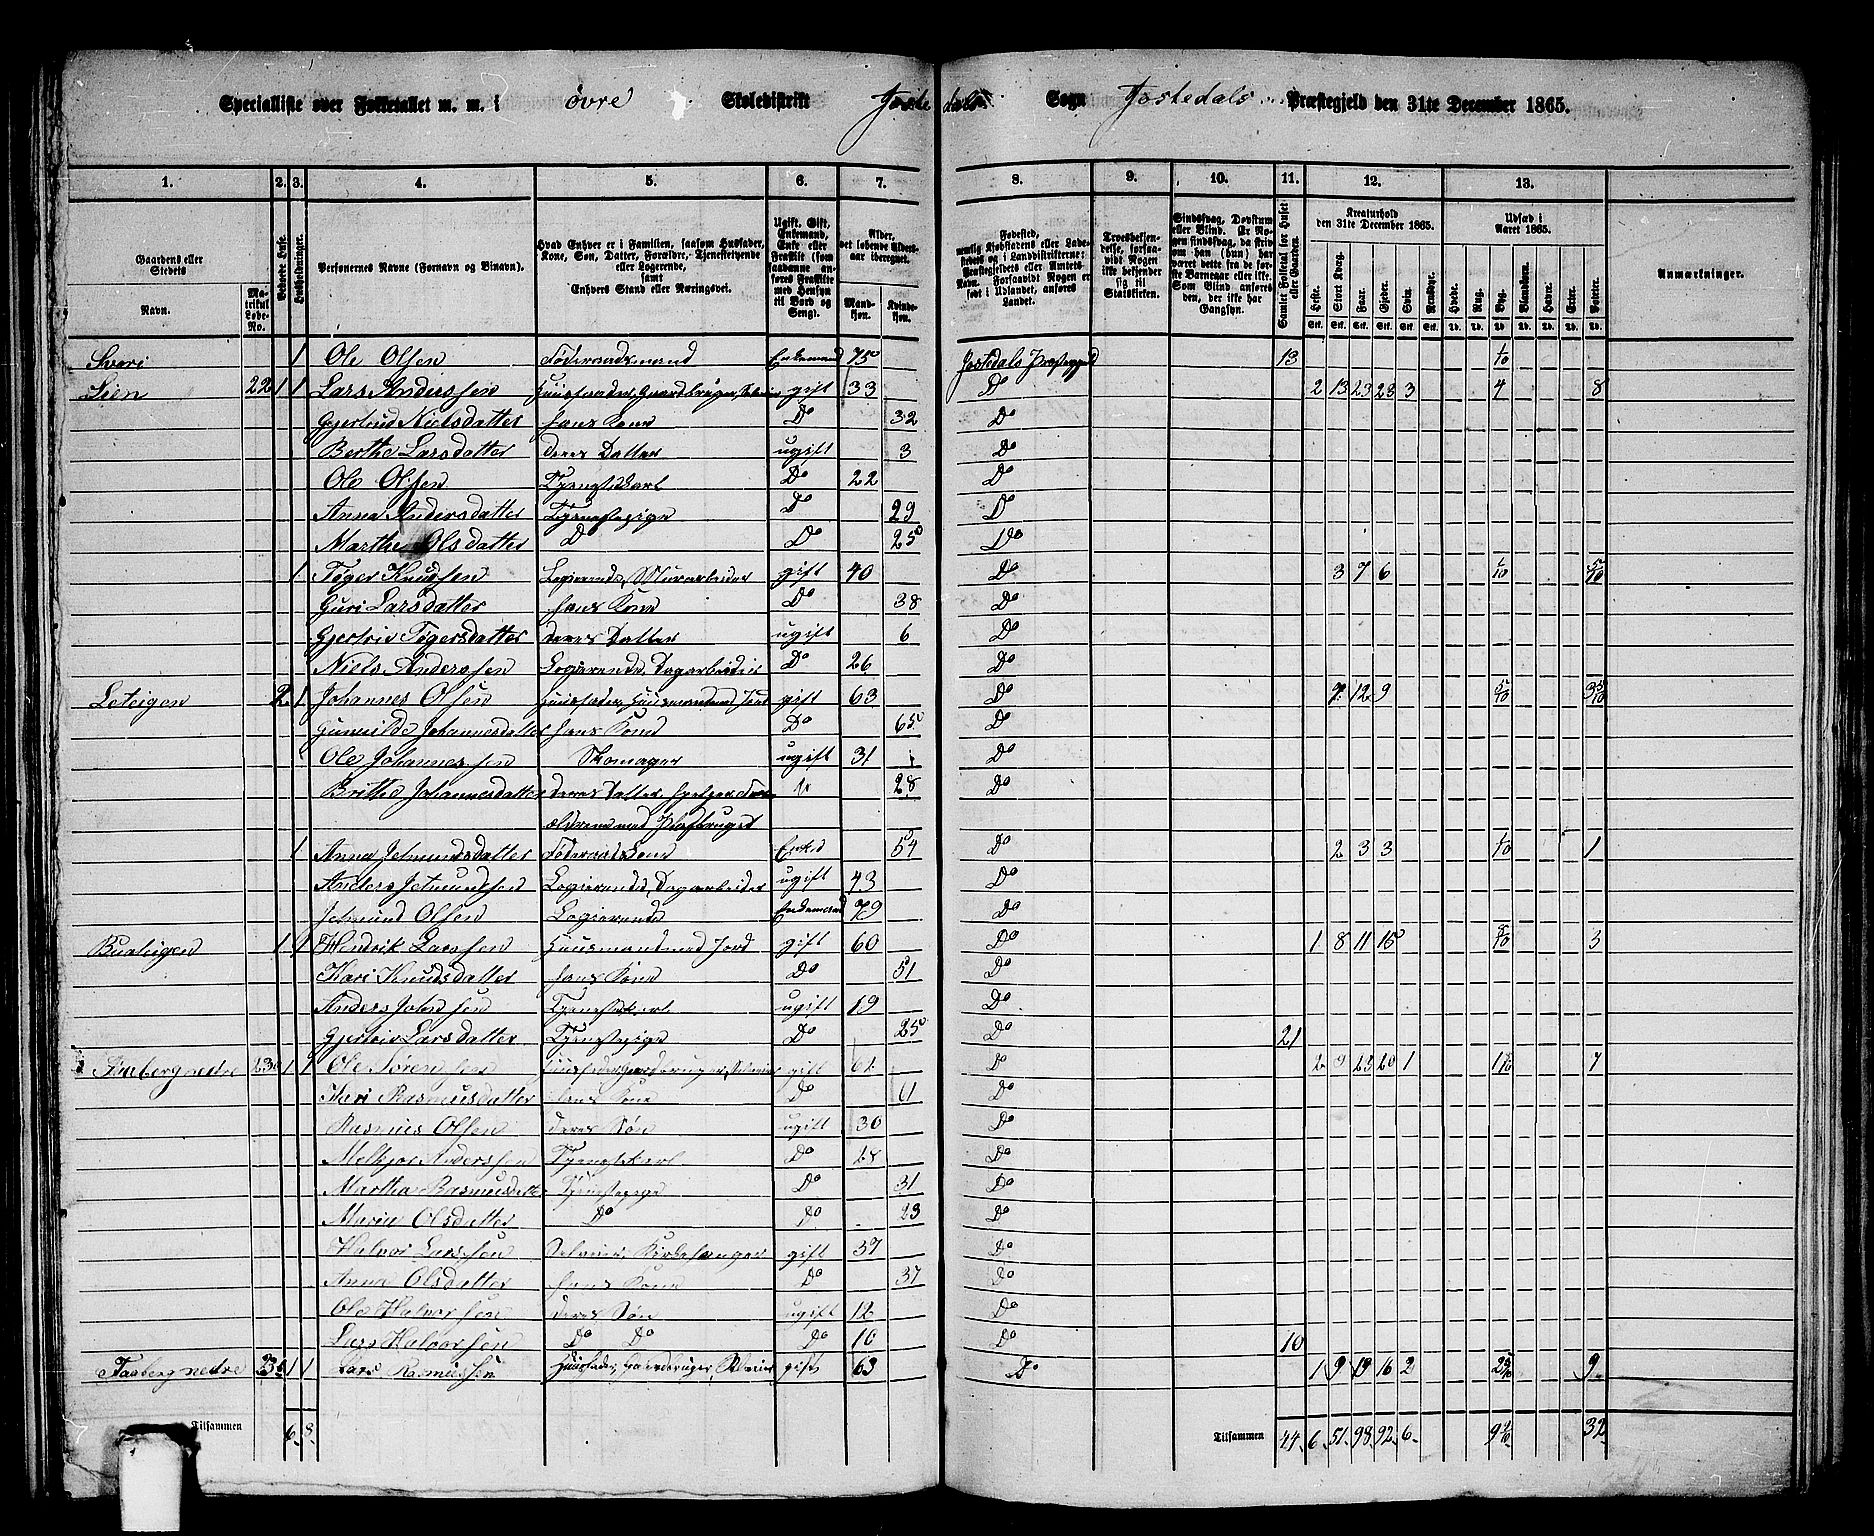 Specialliste over Folketallet m. m. i øvre Skoledistrikt Jostedals Sogn Jostedals Præstegjeld den 31te December 1865.
1. 2. 3. 4. 5. 6. 7. 8. 9. 10. 11. 12. 13.
Gaardens eller Stedets Navn. Matrikul Løbe-No. Beboede Huse. Husholdninger. Personernes Navne (Fornavn og Binavn). Hvad Enhver er i Familien, saasom Husfader, Kone, Søn, Datter, Forældre, Tjenestetyende eller Logerende, samt Enhvers Stand eller Næringsvei. Ugift, Gift, Enkemand, Enke eller Fraskilt (som saadanne anføres Fraskilte med Hensyn til Bord og Seng). Alder, det løbende Alders-aar iberegnet. Mandkjøn. Kvindekjøn.
Fødested, nemlig Kjøbstadens eller Ladestedets og i Landdistrikterne: Præstegjeldets eller Amtets Navn. Forsaavidt Nogen er født i Udlandet, anføres Landet. Troesbekjendelse, forsaavidt Nogen ikke bekjender sig til Statskirken. Sindssvag, Døvstum eller Blind. Er Nogen sindssvag, da skrives om han (hun) har været dette fra de første Barneaar eller ikke. Som Blind anføres den, der ikke har Gangsyn. Samlet Folketal for Huset eller Gaarden. Kreaturhold den 31te December 1865. Udsæd i Aaret 1865. Anmærkninger.
Heste. Stort Kvæg. Faar. Gjeder. Svin. Rensdyr. Hvede. Rug. Byg. Blandkorn. Havre. Erter. Poteter.
Svori 1 Ole Olsen Føderaadsmand Enkemand 75 Jostedals Præstegjeld 13 1/10
Lien 22 1 1 Lars Anderssen Huusfader, Gaardbruger, Selveier gift 33 Do 2 13 23 23 3 4 8
Gjertrud Nielsdatter hans Kone Do 32 Do
Berthe Larsdatter deres Datter ugift 3 Do
Ole Olsen Tjenestekarl Do 22 Do
Anna Andersdatter Tjenestepige Do 29 Do
Marthe Olsdatter Do Do 25 Do
1 Tøger Knudsen Logerende, Murarbeider gift 40 Do 3 7 6 5/10
Guri Larsdatter hans Kone Do 38 Do
Gjertrie Tøgersdatter deres Datter ugift 6 Do
Niels Anderssen Logerende, Dagarbeider Do 26 Do
Løteigen 2 1 Johannes Olsen Huusfader, Huusmand med Jord gift 63 Do 7 12 9 5/10 3 5/10
Gunnilde Johannesdatter hans Kone Do 65 Do
Ole Johannessen Skomager ugift 31 Do
Brithe Johannesdatter deres Datter, hjelper For- Do 28 Do
ældrene med Pladsbruget
1 Anna Jetmundsdatter Føderaadskone Enke 54 Do 2 3 3 1/10 1
Anders Jetmundsen Logerende, Dagarbeider ugift 43 Do
Jetmund Olsen Logerende Enkemand 79 Do
1 1 Henrik Larssen Huusmand med Jord gift 60 Do 1 8 11 15 8/10 3
Kari Knudsdatter hans Kone Do 51 Do
Anders Johnsen Tjenestekarl ugift 19 Do
Gjertrie Larsdatter Tjenestepige Do 25 Do 21
Faaberg nedre 23 1 1 Ole Sørensen Huusfader, Gaardbruger, Selveier gift 61 Do 2 9 23 20 1 7
Kari Rasmusdatter hans Kone Do 61 Do
Rasmus Olsen deres Søn ugift 30 Do
Melkjor Anderssen Tjenestekarl Do 18 Do
Martha Rasmusdatter Tjenestepige Do 31 Do
Maria Olsdatter Do Do 23 Do
Halvor Larssen Selveier, Kirkesanger gift 37 Do
Anna Olsdatter hans Kone Do 37 Do
Ole Halvorsen deres Søn ugift 12 Do
Lars Halvorsen Do Do Do 10 Do 10
Faaberg nedre 23 1 1 Lars Rasmussen Huusfader, Gaardbruger, Selveier gift 63 Do 1 9 19 16 2 9
Tilsammen 6 8 Tilsammen 44 6 51 98 92 6 32